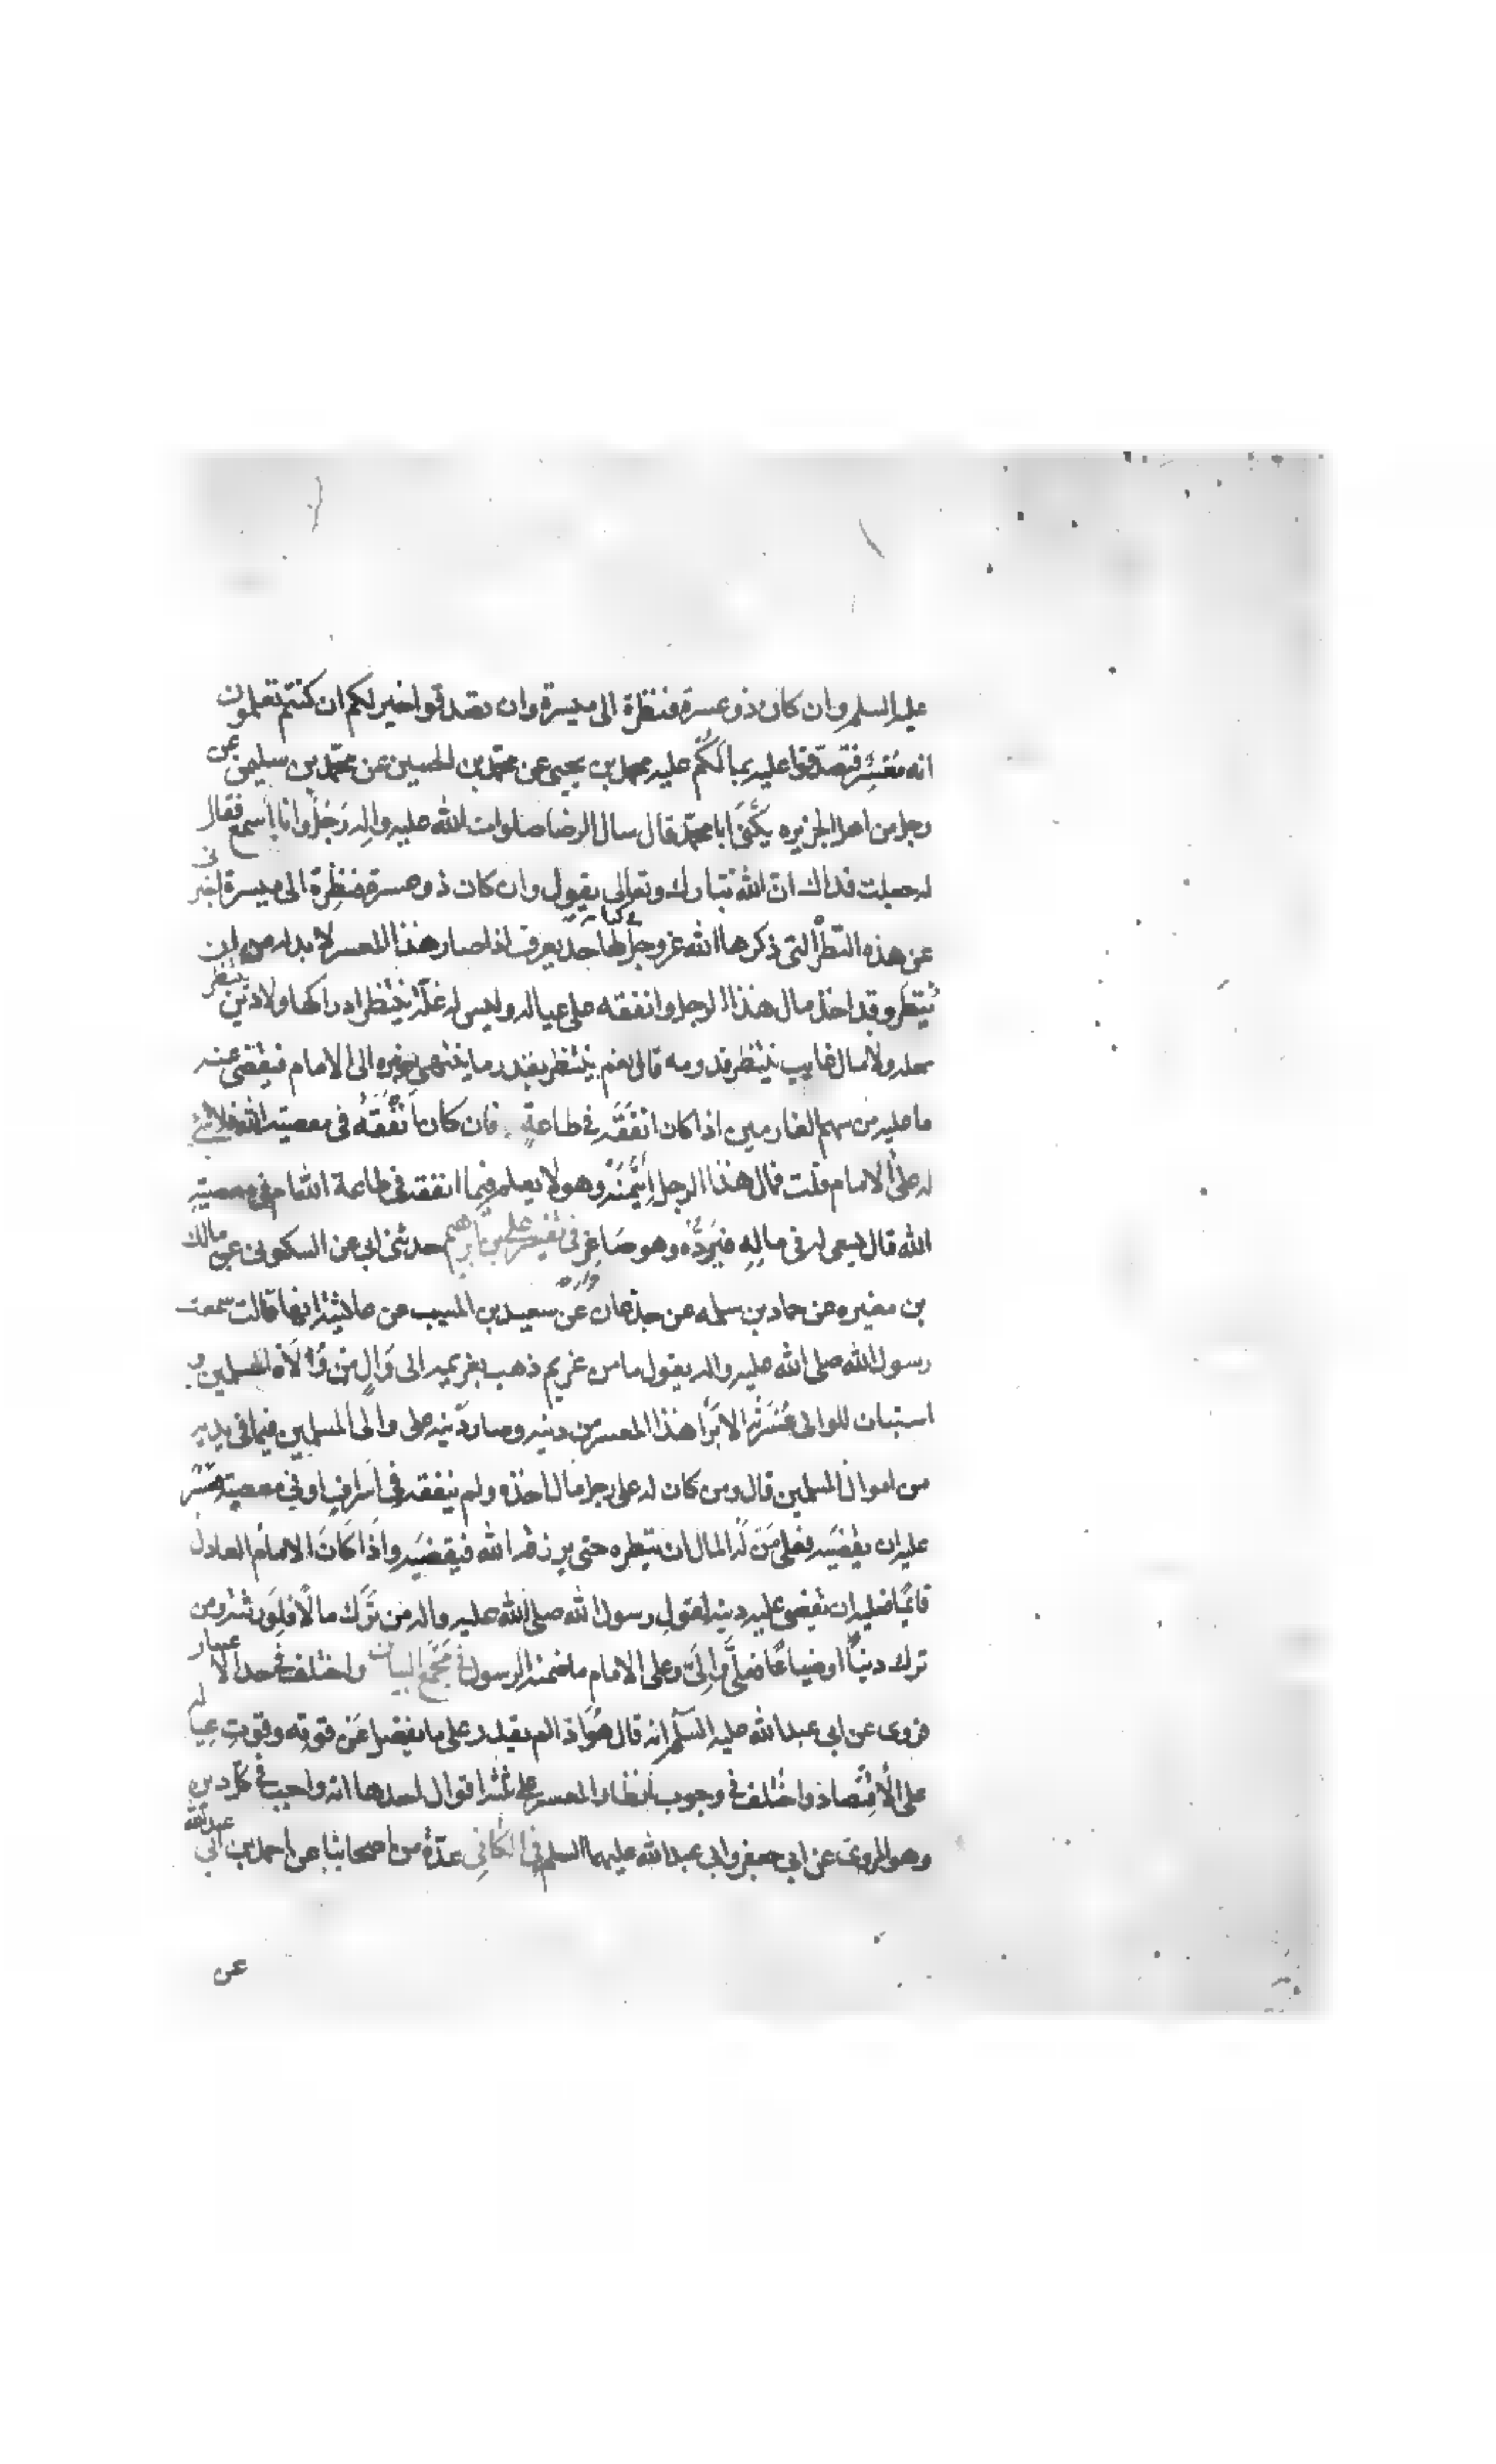 عليه السلم وان كان ذو عسرة فنظرة الى ميسرة وان تصدقوا خير لكم ان كنتم تعلمون
انه مُعْسِر فتصدقوا عليه بمالكم عليه محمد بن يحيى عن محمّد بن الحسين عن محمّد بن سليمن عن
رجل من اهل الجزيره يكنّى ابا محمّد قال سال الرضا صلوات الله عليه واله رجُل وانا اسمع فقال
له جعلت فداك انّ الله تبارك وتعالى يقول وان كان ذو عسرة فنظِرة الى ميسرة اخبرنى
عن هذه النظرة التى ذكرها الله عز وجل فى كتابه لها حد يعرف اذا صار هذا المعسر لا بد له من ان
يُنتظر وقد اخذ مال هذا الرجل وانفقه على عياله وليس له غلّة ينتظر ادراكها ولا دَيْن ينتظر
محله ولا مال غايب ينتظر قدومه قال نعم ينتظر بقدر ما ينتهى خبره الى الامام فيقضى عنه
ما عليه من سهم الغارمين اذا كان انفَقَه فى طاعةِ فان كان اَنْفَقَهُ فى معصية الله فلا شئ
له على الامام قلت فمال هذا الرجل ائتمنه وهو لا يعلم فيما انفقه فى طاعة الله ام فى معصية
الله قال يسعى له فى مالِهِ فيَردُّه وهو صَاغِر فى تفسير على بن ابرهيم حدثنى ابى عن السكونى عن مالك
بن مغيره عن حماد بن سلمه عن جذعان عن سعيد بن المسيب عن عائشة انها قالت سمعت
رسول الله صلى الله عليه واله يقول ما من غريم ذهب بغريمه الى وَالٍ من وُلاة المسلمين و
استبان للوالى عُسْرَته الا برَا هذا المعسر من دينه وصار دَينه على والى المسلمين فيما فى يديه
من اموال المسلمين قال ومن كان له على رجل مال اخذه ولم ينفقه فى اسرافٍ او فى معصية فعَسُر
عليه ان يقْضيَه فعلى مَن لَه المال ان ينتظره حتى يرزقه الله فيقضيَه واذا كَانَ الامام العادل
قائمًا فعليه ان يقضى عليه دينه لقول رسول الله صلى الله عليه واله من تَرَك مالًا فلِوَرثته ومن
ترك دينًا او ضياعًا فعلىَّ والىَّ وعلى الامام ما ضمنه الرسول فى مَجْمَع البيان واختلف فى حد الاعسار
فروى عن ابى عبد الله عليه السلم انه قال هُوَ اذا لم يقدر على ما يفضل عَن قوتِه وقوتِ عياله
على الاقْتِصاد واختُلف فى وجوب انظار المعسر على ثلثة اقوال احدها انه واجب فى كل دين
وهو المروىّ عن ابى جعفر وابى عبد الله عليهما السلم فى الكافى عدّة من اصحابنا عن احمد بن ابى عبد الله
عن